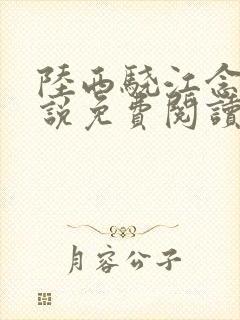 陸西驍江念
說免費閱讀
月容公子